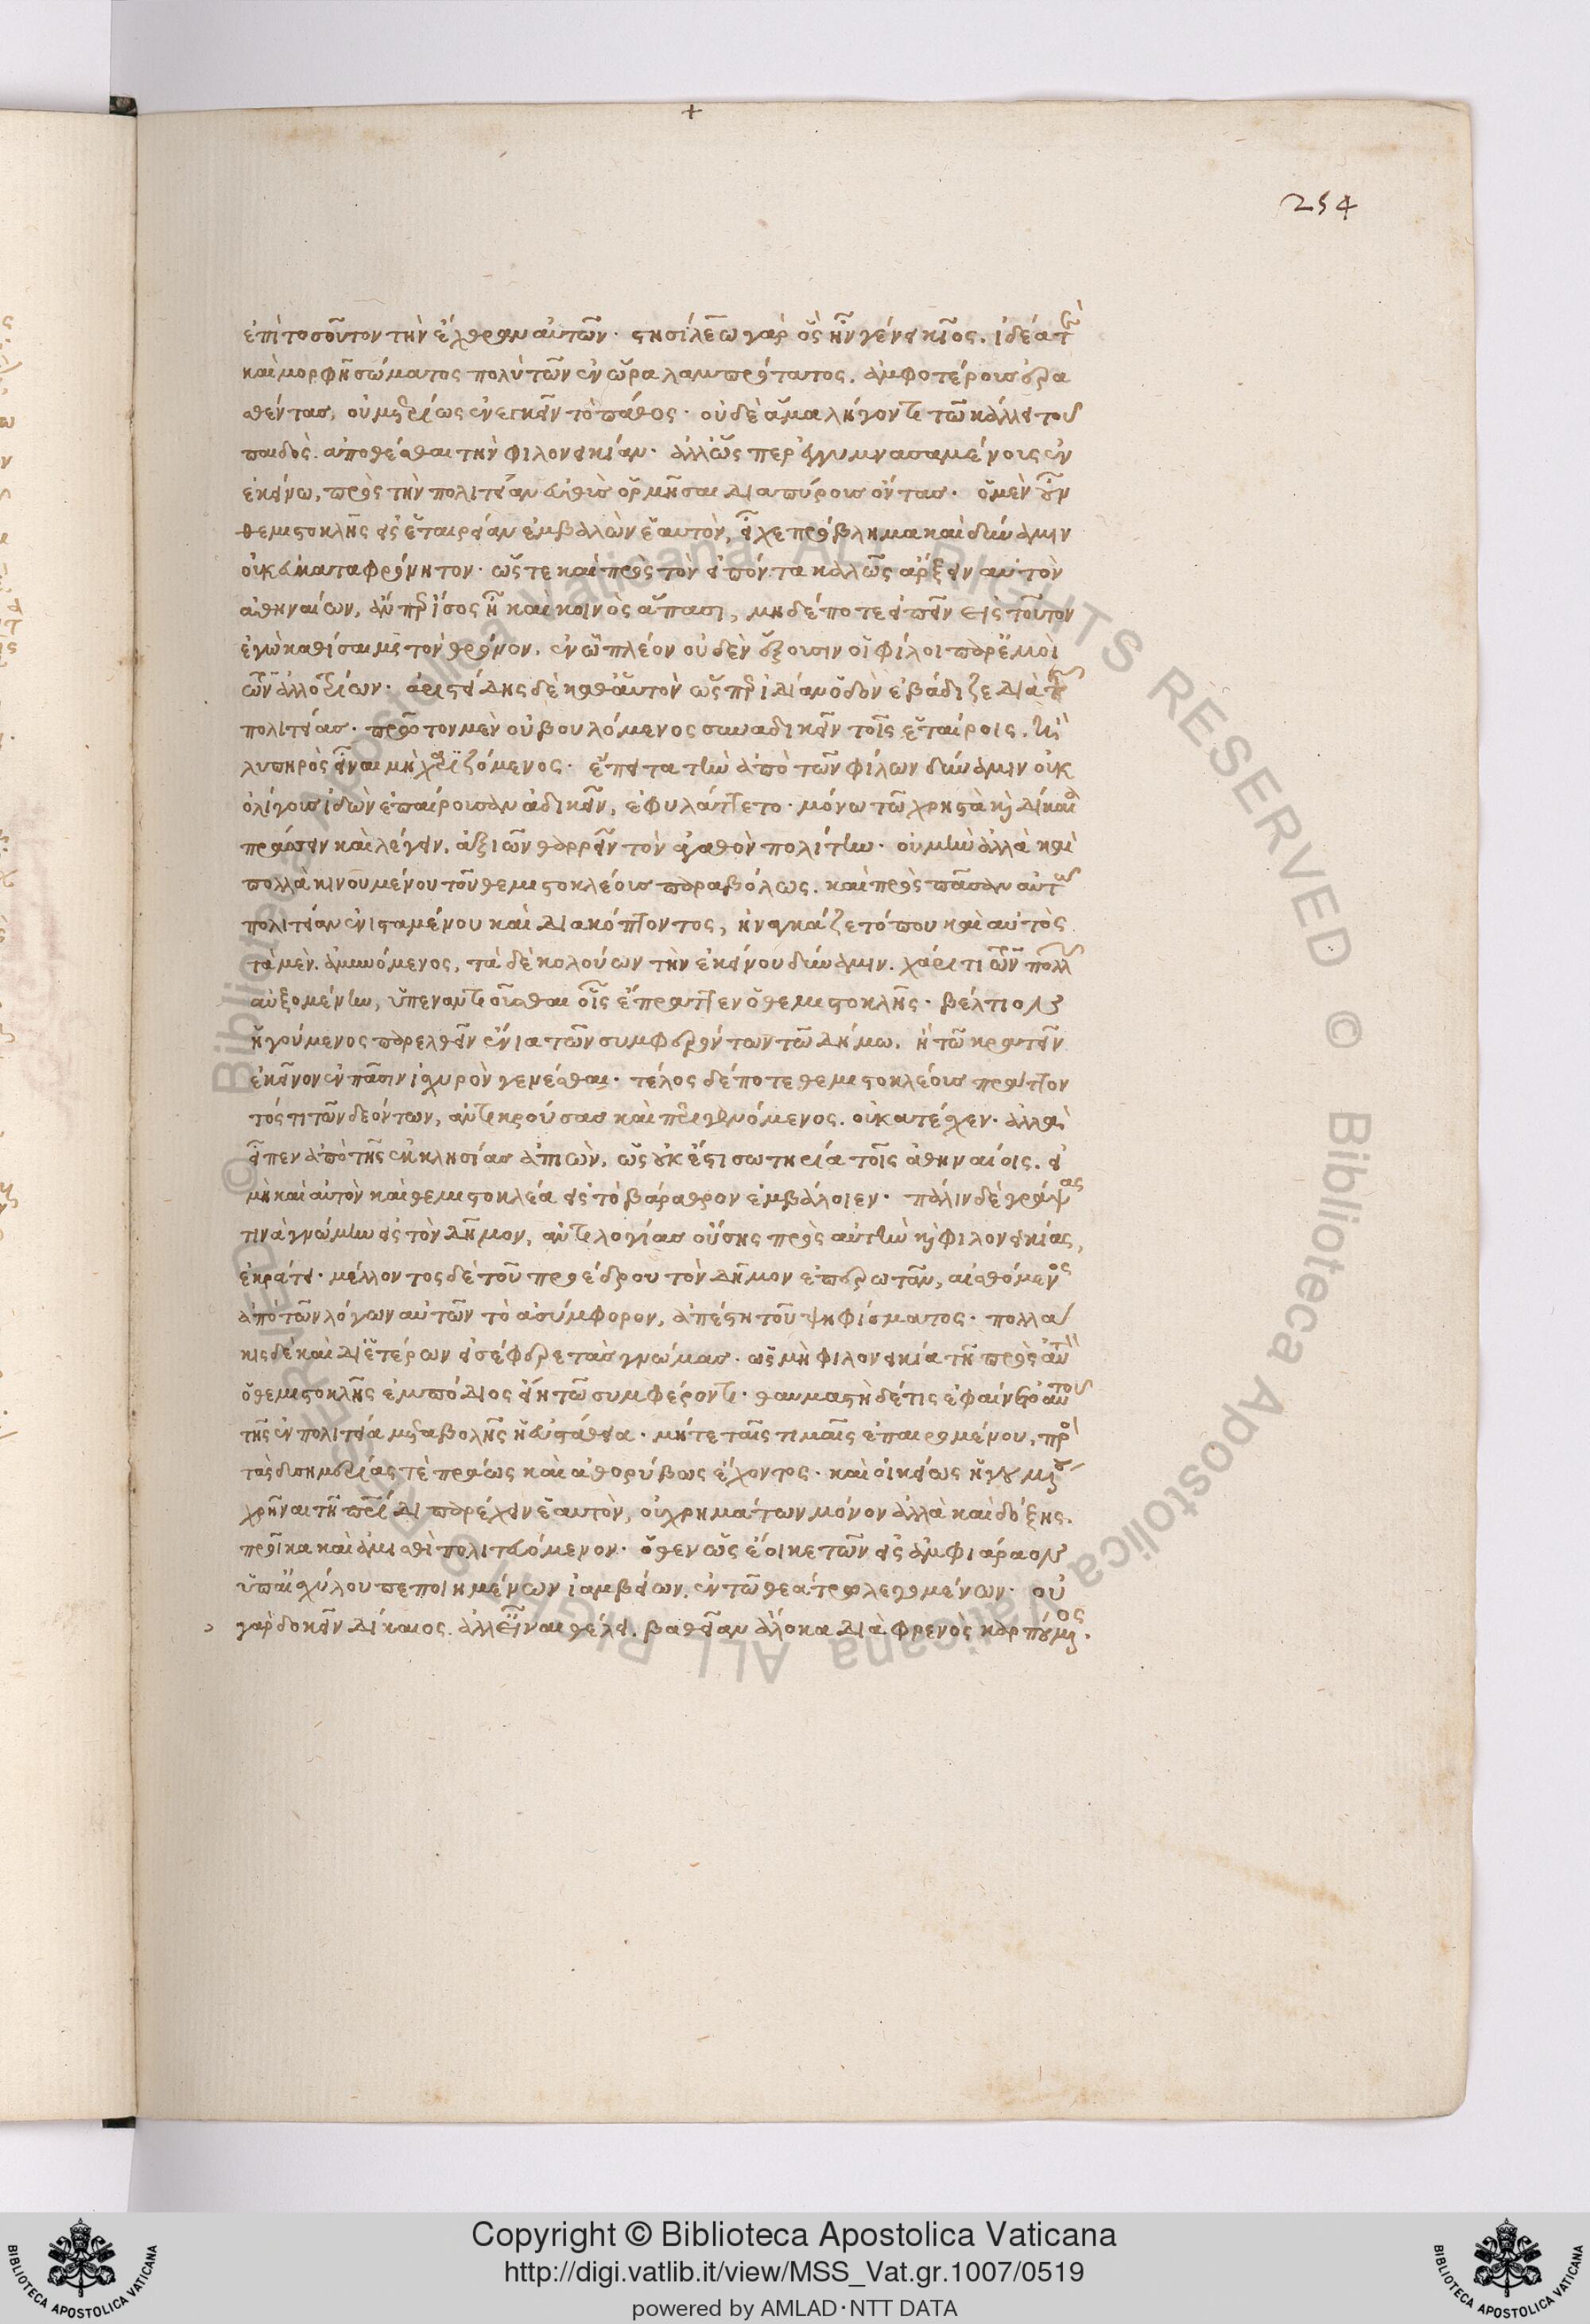 +
254
ἐπὶ τοσοῦτον τὴν ἔχθραν αὐτῶν· στησίλεω γὰρ ὃς ἦν γένει κεῖος. ἰδέα τὲ
καὶ μορφῆ σώματος πολὺ τῶν ἐν ὥρα λαμπρότατος. ἀμφοτέρους ἐρα
σθέντας, οὐ μετρίως ἐνεγκεῖν τὸ πάθος· οὐδὲ ἅμα λήγοντι τῶ κάλλει τοῦ
παιδὸς ἀποθέσθαι τὴν φιλονεικίαν· ἀλλ' ὥσπερ ἐγγυμνασαμένους ἐν
ἐκείνω, πρὸς τὴν πολιτείαν εὐθὺς ὁρμῆσαι διαπύρους ὄντας· ὁ μὲν οὖν
θεμιστοκλῆς εἰς ἑταιρείαν ἐμβαλὼν ἑαυτὸν, εἶχε πρόβλημα καὶ δύναμιν
οὐκ εὐκαταφρόνητον· ὥστε καὶ πρὸς τὸν εἰπόντα καλῶς ἄρξειν αὐτὸν
ἀθηναίων, ἄνπερ ἴσος ἦ καὶ κοινὸς ἅπασι, μηδέποτε εἰπεῖν εἰς τοῦτον
ἐγὼ καθίσαιμι τὸν θρόνον, ἐν ᾧ πλέον οὐδὲν ἕξουσιν οἱ φίλοι παρ' ἐμοὶ
τῶν ἀλλοτρίων· ἀριστείδης δὲ καθ' αὑτὸν ὥσπερ ἰδίαν ὁδὸν ἐβάδιζε διὰ τῆς
πολιτείας· πρῶτον μὲν οὐ βουλόμενος συναδικεῖν τοῖς ἑταίροις. ἢ
λυπηρὸς εἶναι μὴ χαριζόμενος· ἔπειτα τὴν ἀπὸ τῶν φίλων δύναμιν οὐκ
ὀλίγους ἰδὼν ἐπαίρουσαν ἀδικεῖν, ἐφυλάττετο· μόνω τῶ χρηστὰ καὶ δίκαια
πράσσειν καὶ λέγειν, ἀξιῶν θαρρεῖν τὸν ἀγαθὸν πολίτην· οὐ μὴν ἀλλὰ καὶ
πολλὰ κινουμένου τοῦ θεμιστοκλέους παραβόλως. καὶ πρὸς πᾶσαν αὐτῶ
πολιτείαν ἐνισταμένου καὶ διακόπτοντος, ἠναγκάζετό που καὶ αὐτὸς
τὰ μὲν ἀμυνόμενος, τὰ δὲ κολούων τὴν ἐκείνου δύναμιν. χάριτι τῶν πολλῶν
αὐξομένην, ὑπεναντιοῦσθαι οἷς ἔπραττεν ὁ θεμιστοκλῆς· βέλτιον
ἡγούμενος παρελθεῖν ἔνια τῶν συμφερόντων τῶ δήμω. ἢ τῶ κρατεῖν
ἐκεῖνον ἐν πᾶσιν ἰσχυρὸν γενέσθαι· τέλος δέ ποτε θεμιστοκλέους πράττον
τός τι τῶν δεόντων, ἀντικρούσας καὶ περιγενόμενος. οὐ κατέσχεν· ἀλλὰ
εἶπεν ἀπὸ τῆς ἐκκλησίας ἀπιὼν, ὡς οὐκ ἔστι σωτηρία τοῖς ἀθηναίοις. εἰ
μὴ καὶ αὐτὸν καὶ θεμιστοκλέα εἰς τὸ βάραθρον ἐμβάλοιεν· πάλιν δὲ γράψας
τινὰ γνώμην εἰς τὸν δῆμον, ἀντιλογίας οὔσης πρὸς αὐτὴν καὶ φιλονεικίας,
ἐκράτει· μέλλοντος δὲ τοῦ προέδρου τὸν δῆμον ἐπερωτᾶν, αἰσθόμενος
ἀπὸ τῶν λόγων αὐτῶν τὸ ἀσύμφορον, ἀπέστη τοῦ ψηφίσματος· πολλά
κις δὲ καὶ δι' ἑτέρων εἰσέφερε τὰς γνώμας· ὡς μὴ φιλονεικία τῆ πρὸς αὐτὸν
ὁ θεμιστοκλῆς ἐμπόδιος εἴη τῶ συμφέροντι· θαυμαστὴ δέ τις ἐφαίνετο αὐτοῦ
τῆς ἐν πολιτεία μεταβολῆς ἡ εὐστάθεια· μήτε ταῖς τιμαῖς ἐπαιρομένου, πρὸς
τὰς δυσημερίας τὲ πράως καὶ ἀθορύβως ἔχοντος· καὶ οἰκείως ἡγουμένου
χρῆναι τῆ πατρίδι παρέχειν ἑαυτὸν, οὐ χρημάτων μόνον ἀλλὰ καὶ δόξης.
προῖκα καὶ ἀμισθὶ πολιτευόμενον· ὅθεν ὡς ἔοικε τῶν εἰς ἀμφιάραον
ὑπ' αἰσχύλου πεποιημένων ἰαμβείων, ἐν τῶ θεάτρω λεγομένων· οὐ
γὰρ δοκεῖν δίκαιος. ἀλλ' εἶναι θέλει. βαθεῖαν ἄλοκα διὰ φρενὸς καρπούμενος.
Copyright © Biblioteca Apostolica Vaticana
http://digi.vatlib.it/view/MSS_Vat.gr.1007/0519
powered by AMLAD·NTT DATA
BIBLIOTECA APOSTOLICA VATICANA
BIBLIOTECA APOSTOLICA VATICANA
© Biblioteca Apostolica Vaticana ALL RIGHTS RESERVED © Biblioteca Apostolica Vaticana ALL RIGHTS RESERVED